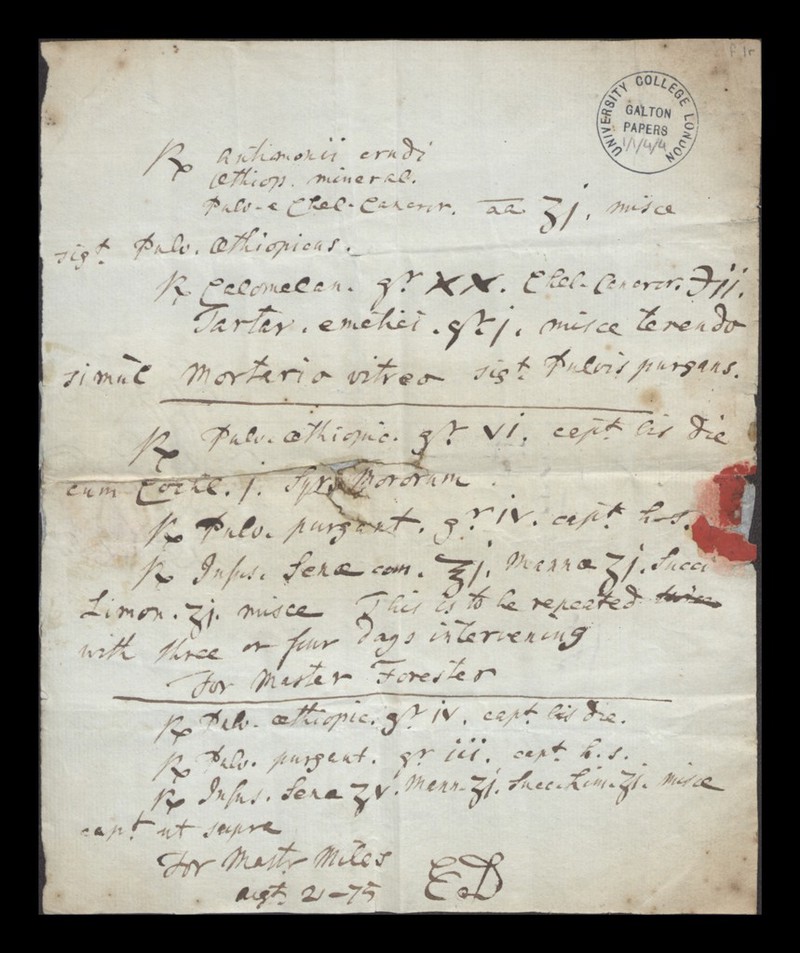 f. 1r
UNIVERSITY COLLEGE LONDON
GALTON
PAPERS
1/1/4/4
℞ antimonii crudi
Œthiop. mineral.
Pulv. e Chel. Cancror. aa ʒj. misce
sigt. Pulv. Œthiopicus.
℞ Calomelan. gr. XX. Chel. Cancror. ℈ij.
Tartar. emetici. gr. j. misce terendo
simul Morterio vitreo sigt. Pulvis purgans.
℞ Pulv. œthiopic. gr. vi. capt. bis die
cum Cochl. j. Syr. Mororum
℞ Pulv. purgant. gr iv. capt. h.s.
℞ Infus. Senæ com. ℥j. Mannæ ʒj. Succi
Limon. ʒj. misce This is to be repeated
with three or four days intervening
For Master Forester
℞ Pulv. œthiopic. gr. iv. capt. bis die.
℞ Pulv. purgant. gr iii. capt. h.s.
℞ Infus. Sena ʒv. Mann. ʒj. Succ. Lim. ʒj. misce
capt. ut supra
For Mastr. Miles
augt. 21-75 ED